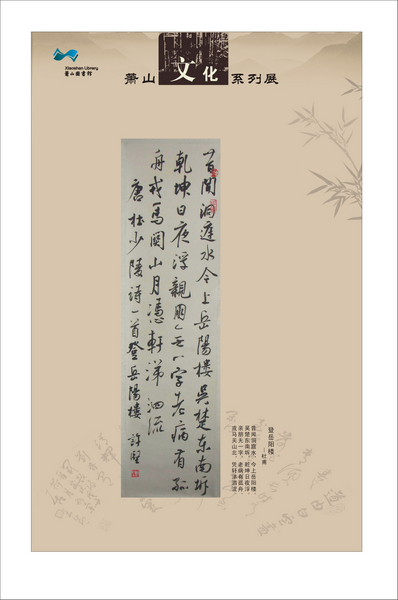 Xiaoshan Library
萧山圖書館
萧山文化系列展
昔聞洞庭水今上岳陽樓吳楚東南坼
乾坤日夜浮親朋无一字老病有孤
舟戎馬關山月憑軒涕泗流
唐杜少陵詩一首登岳陽樓 許堅
登岳阳楼
—杜甫
昔闻洞庭水,今上岳阳楼。
吴楚东南坼,乾坤日夜浮。
亲朋无一字,老病有孤舟。
戎马关山北,凭轩涕泗流。